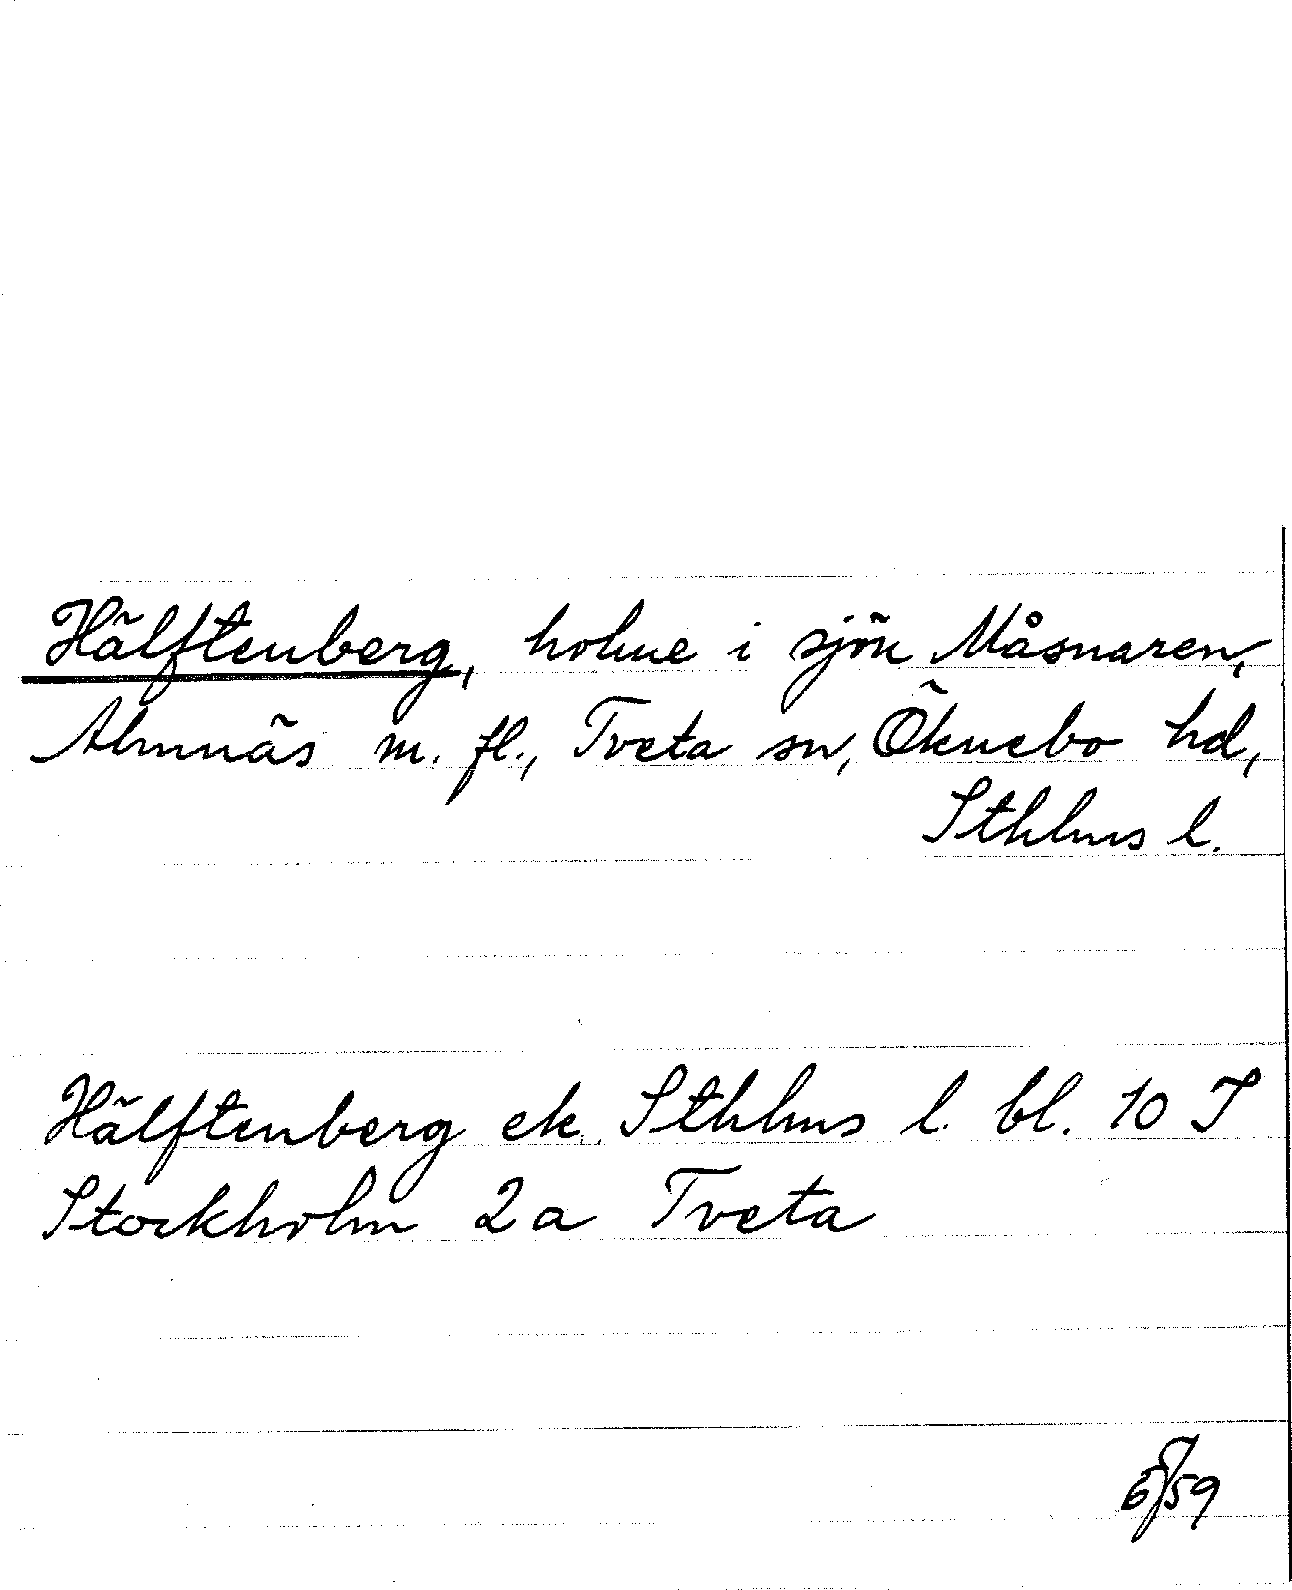 Hälftenberg, holme i sjön Måsnaren,
Almnäs m. fl., Tveta sn, Öknebo hd,
Sthlms l.
Hälftenberg ek. Sthlms l. bl. 10 I
Stockholm 2a Tveta